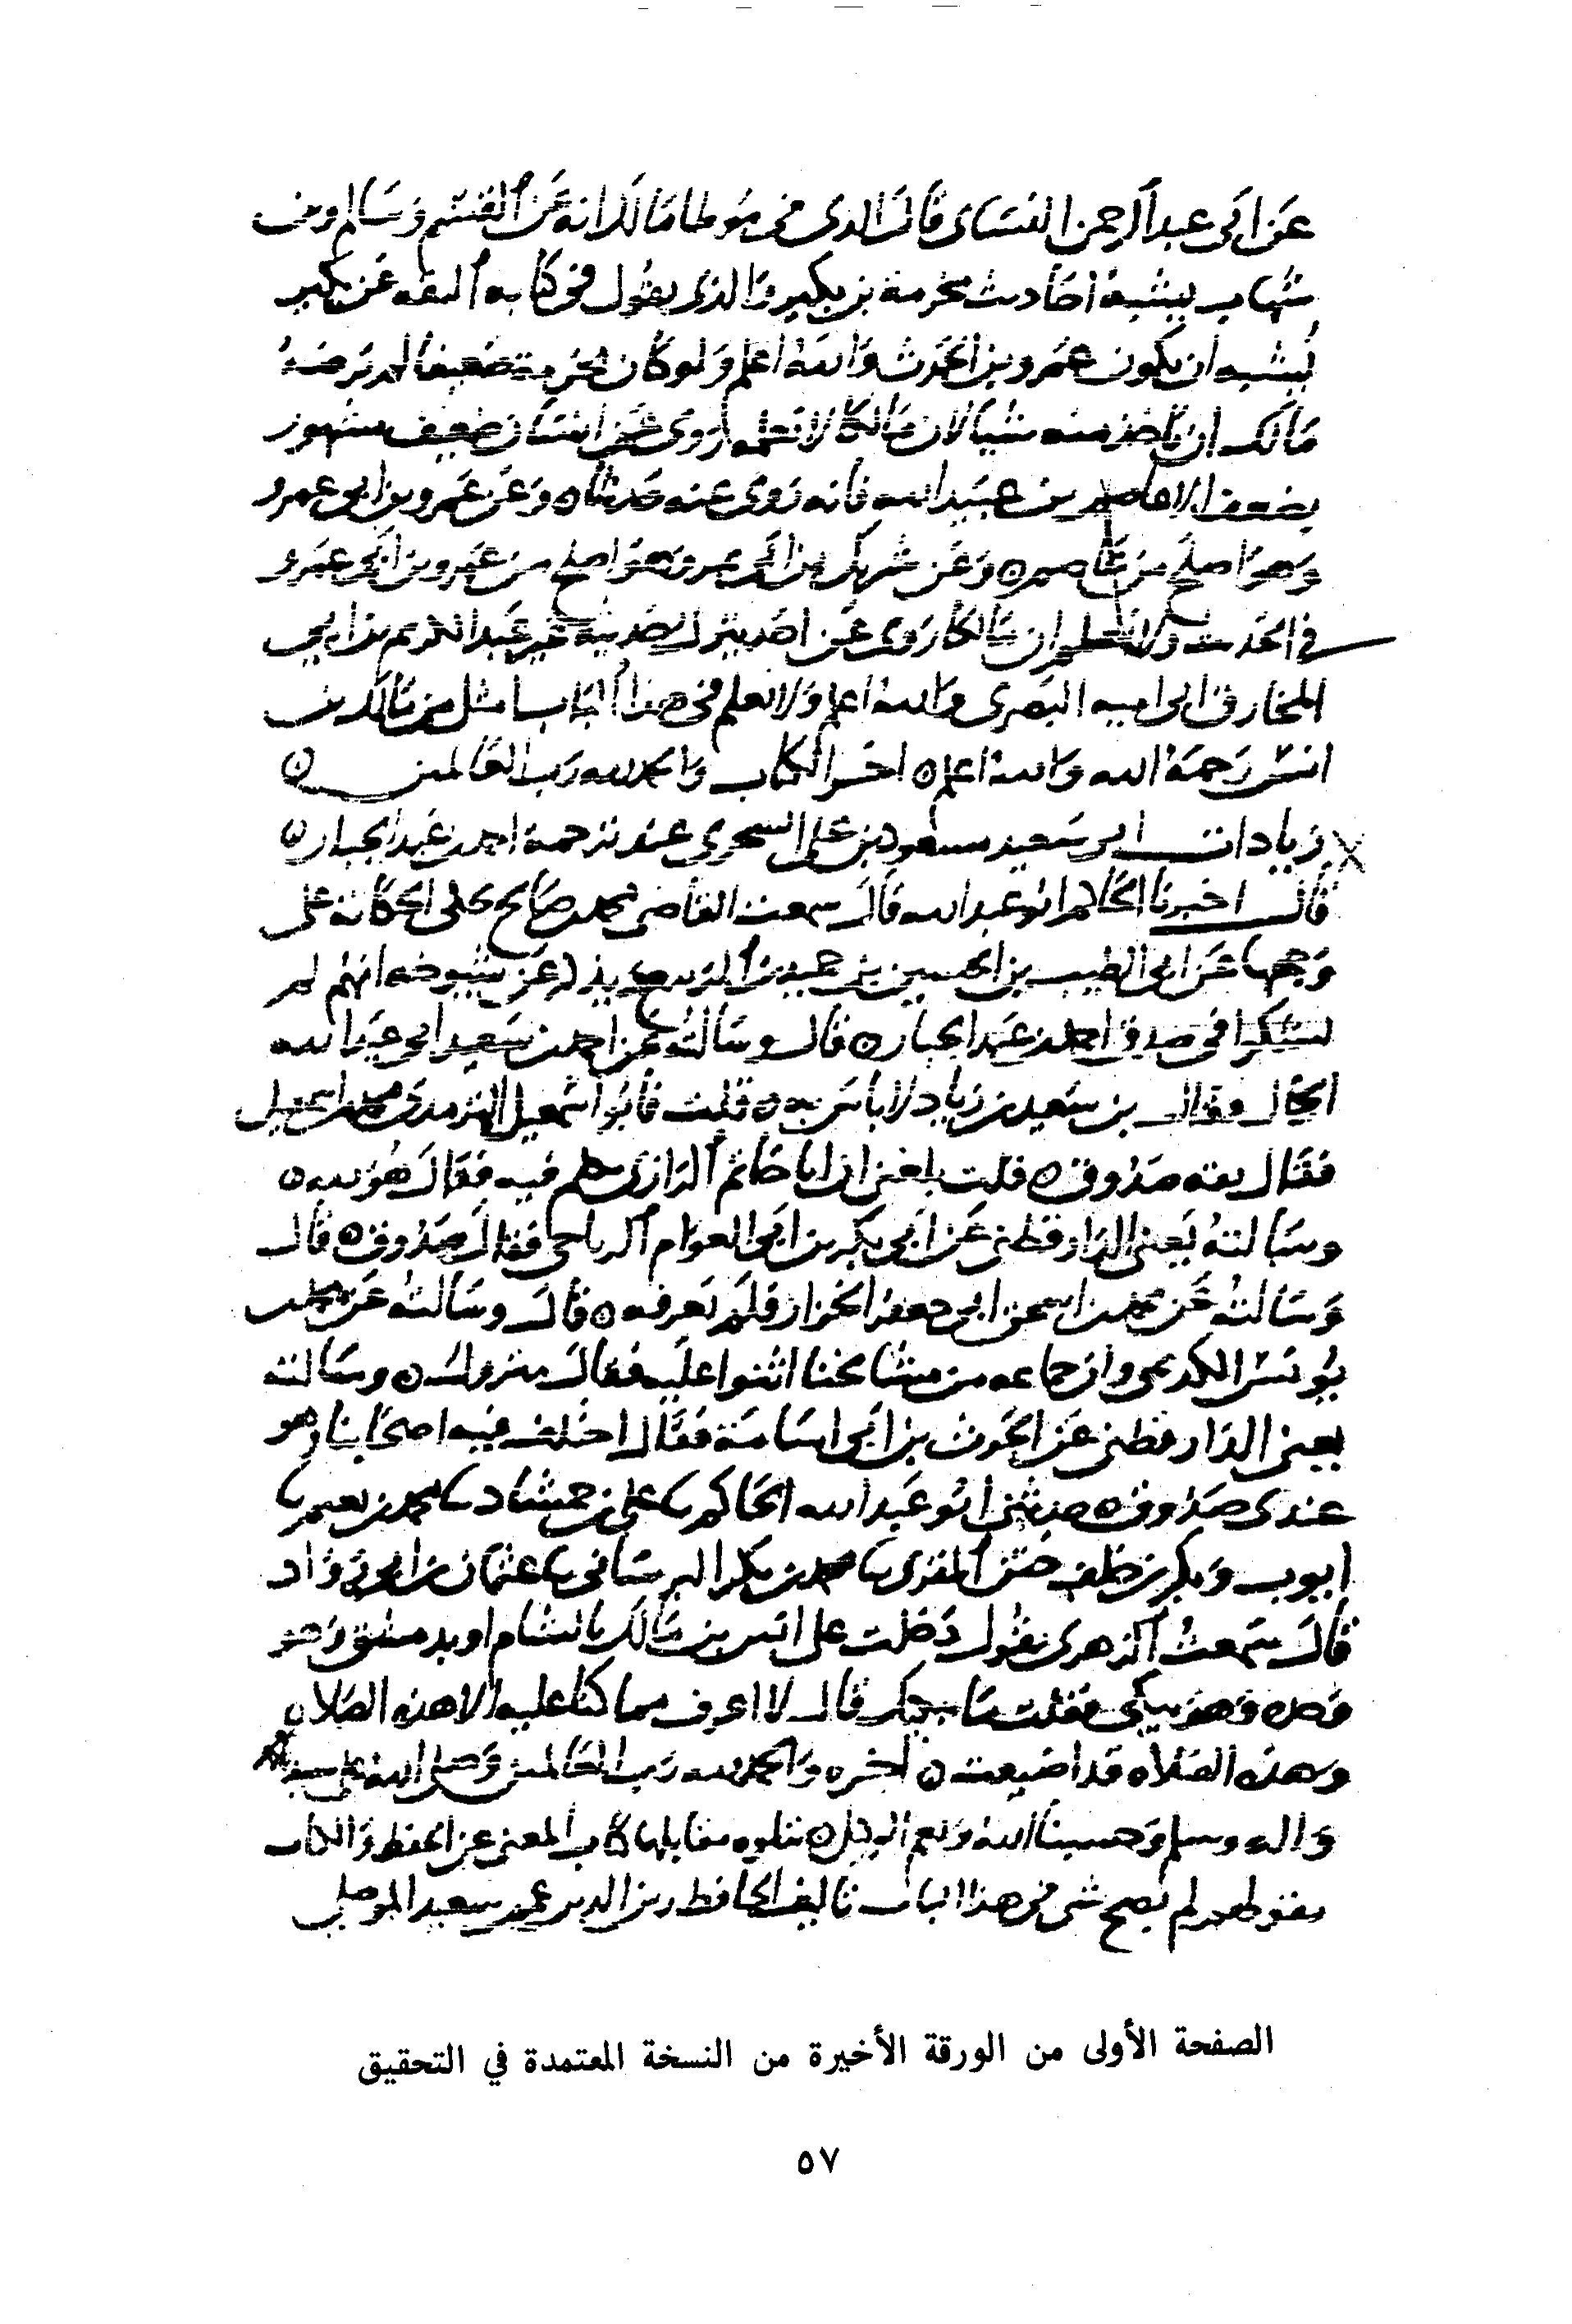 عن ابى عبد الرحمن النسائ قال الذى فى موطا مالك انه عن القسم وسالم وبن
شهاب يشبه احاديث مخرمة بن بكير والذى يقول فى كتابه الثقه عن بكير
يُشبه ان يكون عمرو بن الحرث والله اعلم ولو كان مخرمة ضعيفا لم يرضهُ
مالك ان ياخذ منه شيا لان مالكا لا نعلمه روى عن انسان ضعيف مشهور
يضعف الا عاصم بن عبيد الله فانه روى عنه حديثا ٥ وعن عمرو بن ابى عمرو
وهو اصلح من عاصم ٥ وعن شريك بن ابى نمر وهو اصلح من عمرو بن ابى عمرو
فى الحديث ولا نعلم ان مالكا روى عن احد يترك حديثه غير عبد الكريم بن ابى
المخارق ابى اميه البصرى والله اعلم ولا نعلم فى هذا الباب امثل من مالك بن
انس رحمهُ الله والله اعلم ٥ اخر الكتاب والحمد لله رب العالمين ٥
زيادات ابى سعيد مسعود بن على السجزى عند ترجمة احمد بن عبد الجبار ٥
قال اخبرنا الحاكم ابو عبد الله قال سمعت القاضى محمد بن صالح يحكى الحكاية على
وجهها عن ابى الطيب بن الحسين بن حميد بن الربيع يذكر عن شيوخه انهم لم
يشكوا فى صدق احمد بن عبد الجبار ٥ قال وسالتُه عن احمد بن سعيد ابى عبد الله
الجمال فقال بن سعيد بن زياد لا باس به ٥ قلت فابو اسمعيل الترمذى محمد بن اسمعيل
فقال ثقه صدُوق ٥ قلت بلغنى ان ابا حاتم الرازى تكلم فيه فقال هُو ثقه ٥
وسالتهُ يَعنى الدارقطنى عن ابى بكر بن ابى العوام الرياحى فقال صَدُوق ٥ قال
وسالتهُ عن محمد بن اسحق ابى جعفر الخزاز فلم يعرفه ٥ قال وسالته عن محمد بن
يُونس الكديمى وان جماعه من مشايخنا اثنوا عليه فقال متروك ٥ وسالته
يعنى الدارقطنى عن الحرث بن ابى اسامة فقال اختلف فيه اصحابنا وهو
عندى صدوق ٥ حدثنى ابُو عبد الله الحاكم نا على بن حمشاد نا محمد بن نعيم نا
ايوب وبكر بن خلف ختن المقرى نا محمد بن بكر البرسانى نا عثمان بن ابى رواد
قال سَمعتُ الزهرى يقُول دخلت على انس بن مالك بالشام او بدمشق وهو
وحده وهو يبكى فقلت ما يبكيك قال لا اعرف مما كنا عليه الا هذه الصلاه
وهذه الصلاه قد اضيعت ٥ اخره والحمد لله رب العالمين وصلى الله على سيدنا
واله وسلم وحسبنا الله ونعم الوكيل ٥ نتلوه مقابلها كتاب المغنى عن الحفظ والكتاب
بقولهم لم يصح شى فى هذا الباب تاليف الحافظ زين الدين عمر بن سعيد الموصلى
الصفحة الأولى من الورقة الأخيرة من النسخة المعتمدة في التحقيق
٥٧